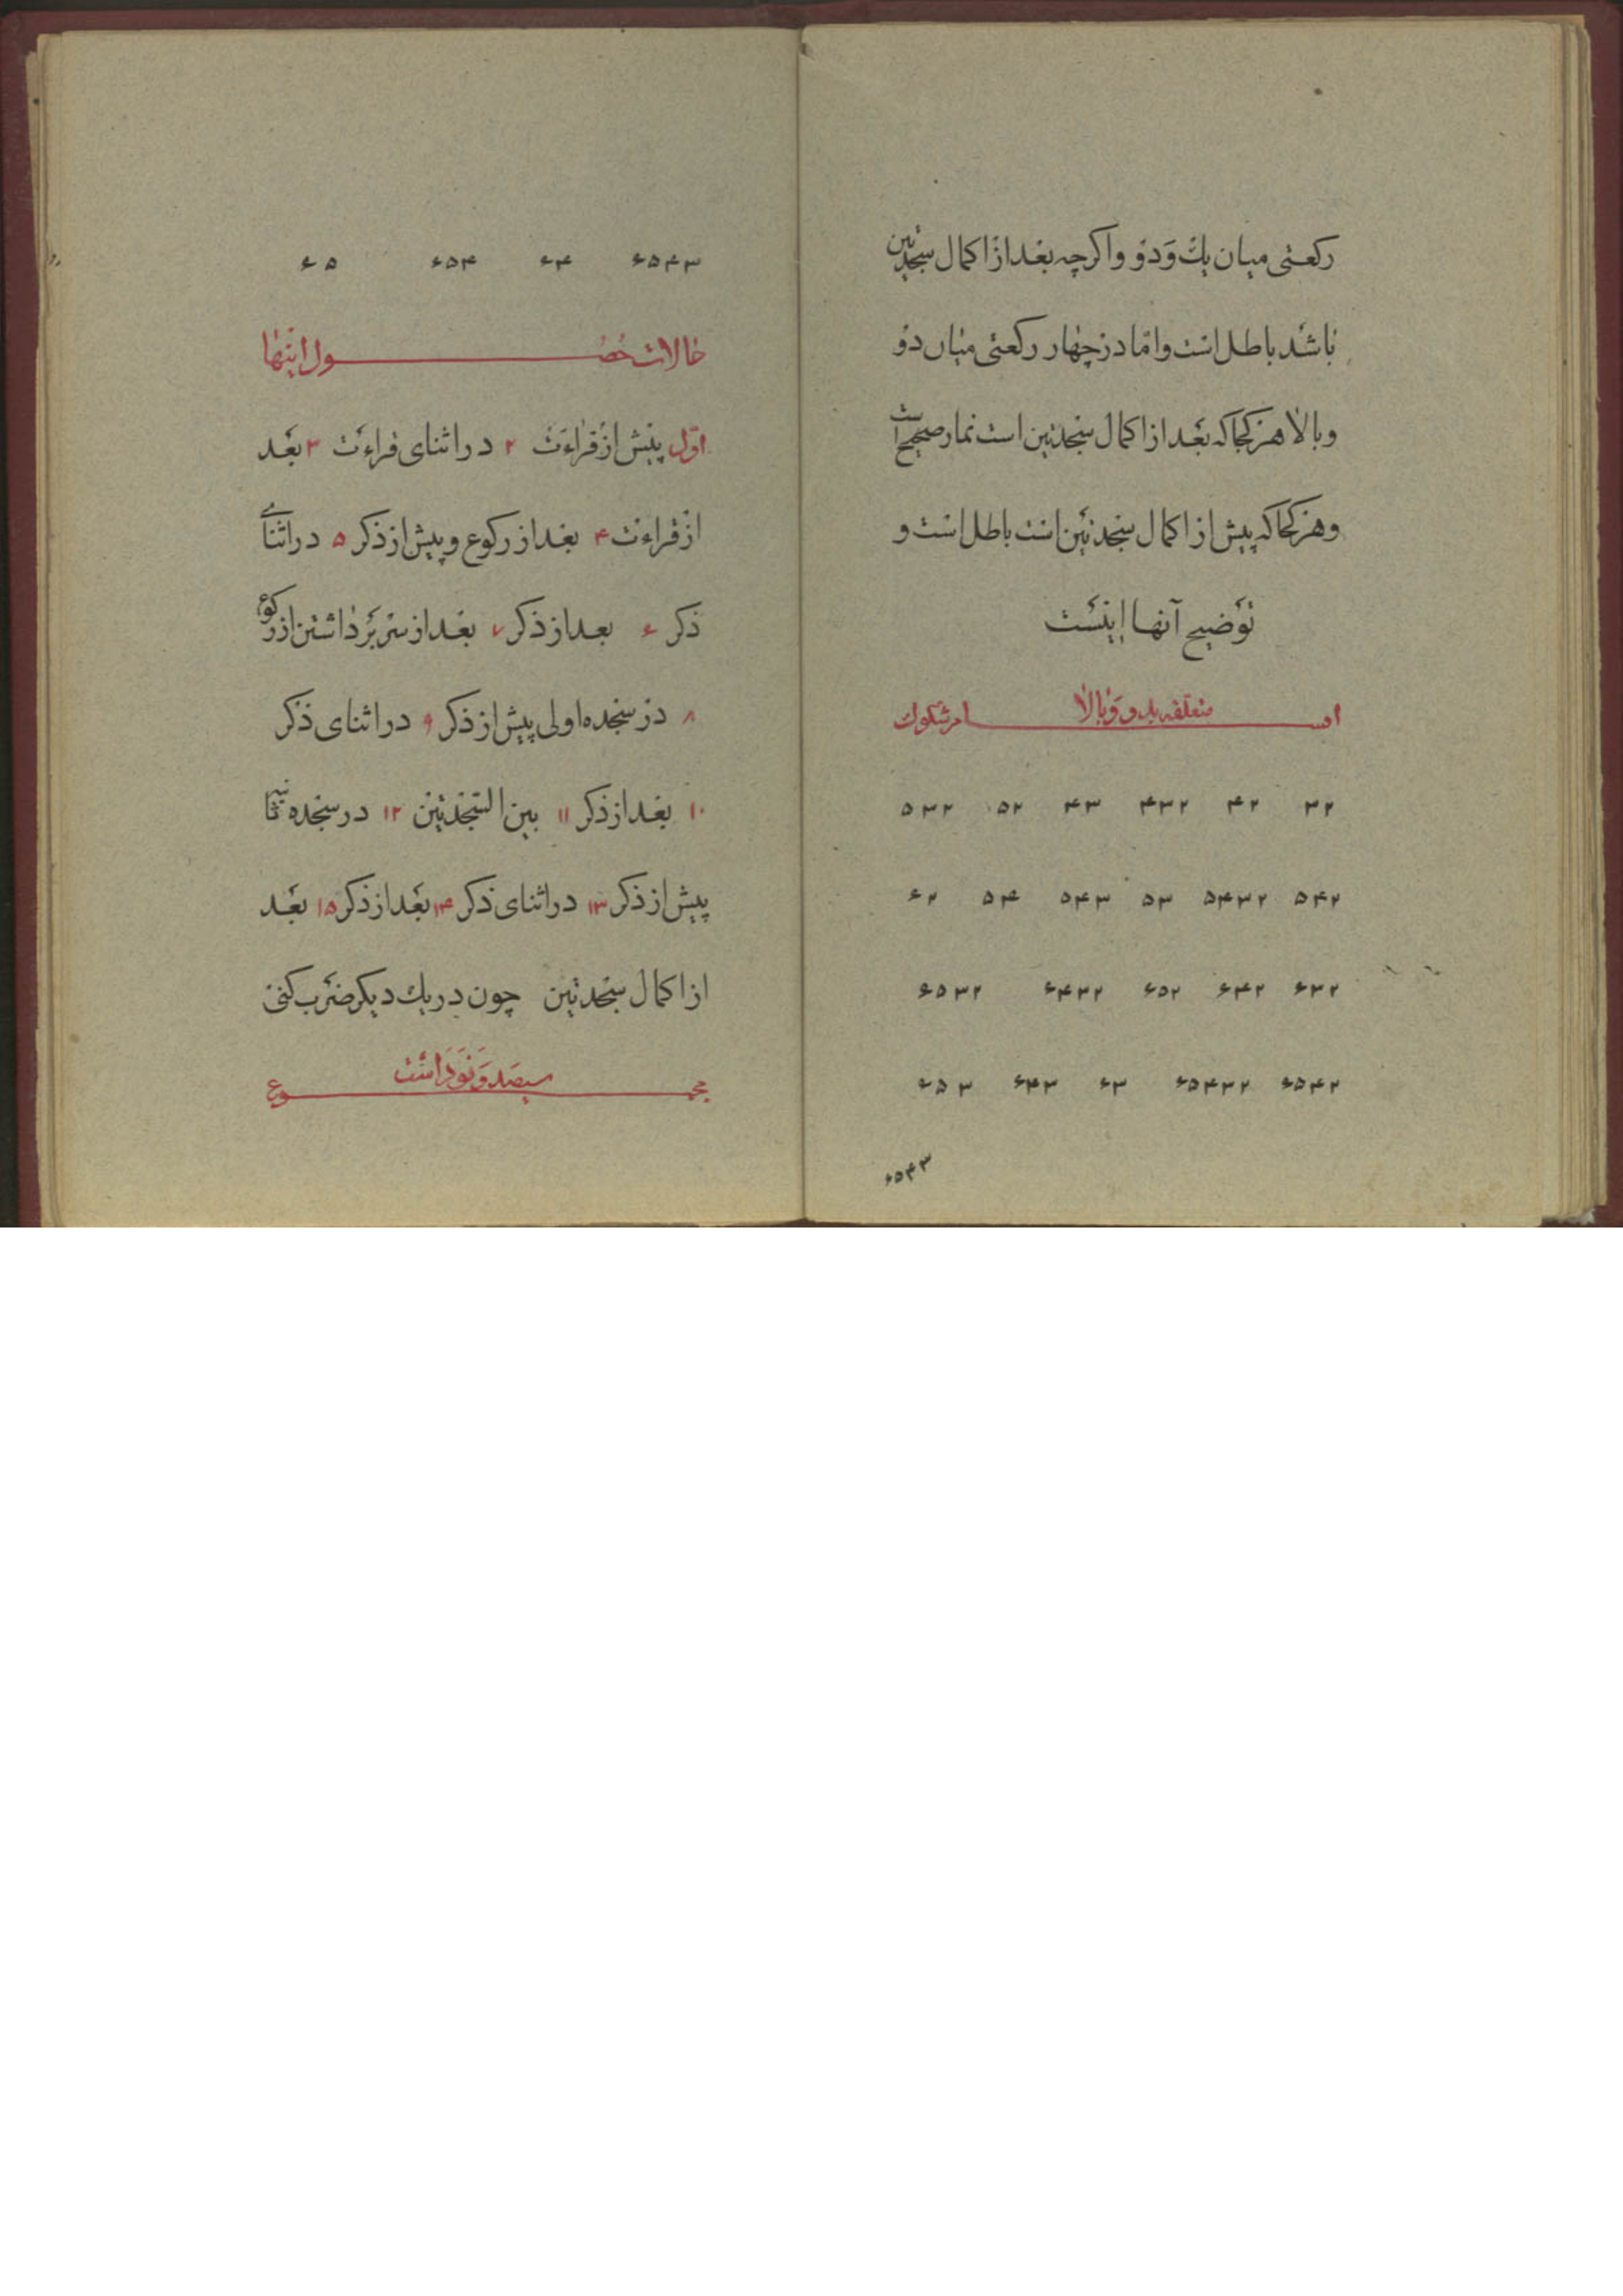 رکعتی میان یك وَدوُ واکرچه بعد از اکمال سجدتین
باشد باطل است و امّا در چهار رکعتی میان دوُ
وبالا هر کجا که بَعد از اکمال سجدتین است نماز صحیح است
و هر کجا که پیش از اکمال سجدتین است باطل است و
توَضیح آنها اینست
اقسام شکوك متعلقه بدو وَبالا
۲۳ ۲۴ ۲۳۴ ۳۴ ۲۵ ۲۳۵
۲۴۵ ۲۳۴۵ ۳۵ ۳۴۵ ۴۵ ۲۶
۲۳۶ ۲۴۶ ۲۵۶ ۲۳۴۶ ۲۳۵۶
۲۴۵۶ ۲۳۴۵۶ ۳۶ ۳۴۶ ۳۵۶
۳۴۵۶
۳۴۵۶ ۴۶ ۴۵۶ ۵۶
حالات حُصول اینها
اوّل پیش از قراءَت ۲ در اثنای قراءَت ۳ بعَد
از قراءت ۴ بعد از رکوع و پیش از ذکر ۵ در اثنای
ذکر ۶ بعد از ذکر ۷ بعد از سر برَداشتن از رکوع
۸ در سجده اولی پیش از ذکر ۹ در اثنای ذکر
۱۰ بعد از ذکر ۱۱ بین السّجدتین ۱۲ در سجده ثانیه
پیش از ذکر ۱۳ در اثنای ذکر ۱۴ بَعد از ذکر ۱۵ بعَد
از اکمال سجدتین چون در یك دیکر ضرَب کنی
مجموع سیصَد وَنوَد است